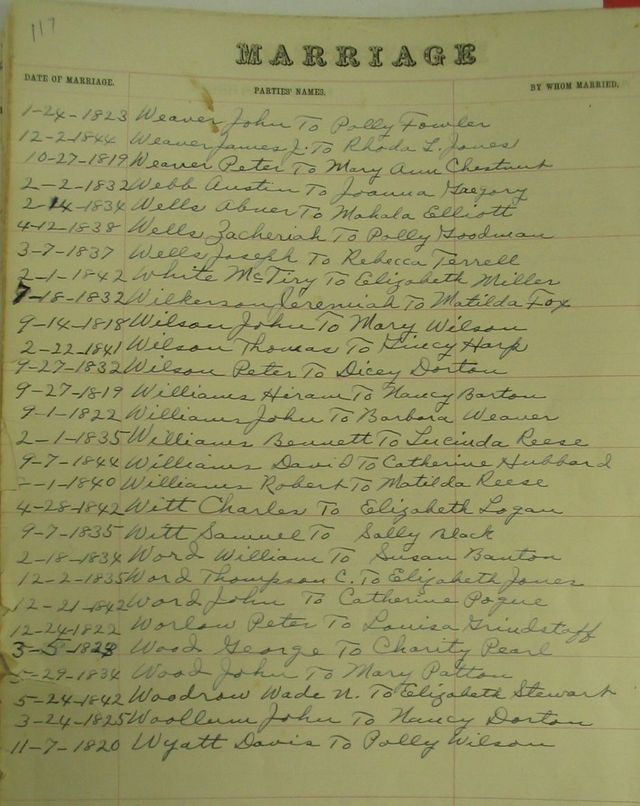 117
MARRIAGE
DATE OF MARRIAGE. PARTIES' NAMES. BY WHOM MARRIED.
1-24-1823 Weaver John To Polly Fowler
12-2-1844 Weaver James L. To Rhoda L. Jones
10-27-1819 Weaver Peter To Mary Ann Chestnut
2-2-1832 Webb Austin To Joanna Gregory
2-14-1834 Wells Abner To Mahala Elliott
4-12-1838 Wells Zacheriah To Polly Goodman
3-7-1837 Wells Joseph To Rebecca Terrell
2-1-1842 White McTiry To Elizabeth Miller
7-18-1832 Wilkerson Jeremiah To Matilda Fox
9-14-1818 Wilson John To Mary Wilson
2-22-1841 Wilson Thomas To Harp
9-27-1832 Wilson Peter To Dicey Dorton
9-27-1819 Williams Hiram To Nancy Barton
9-1-1822 Williams John To Barbora Weaver
2-1-1835 Williams Bennett To Lucinda Reese
9-7-1844 Williams David To Catherine Hubbard
-1-1840 Williams Robert To Matilda Reese
4-28-1842 Witt Charles To Elizabeth Logan
9-7-1835 Witt Samuel To Sally Black
2-18-1834 Word William To Susan Banton
12-2-1835 Word Thompson C. To Elizabeth Jones
12-21-1842 Word John To Catherine Pogue
12-24-1822 Worlow Peter To Louisa Grindstaff
3-5-1828 Wood George To Charity Pearl
5-29-1834 Wood John To Mary Patton
5-24-1842 Woodrow Wade N. To Elizabeth Stewart
3-24-1825 Woollum John To Nancy Dorton
11-7-1820 Wyatt Davis To Polly Wilson